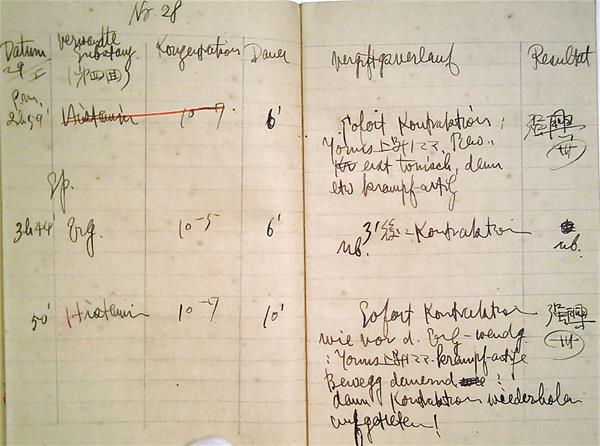 Nr. 28
Datum verwandte Substanz Konzentration Dauer Vergiftgsverlauf Resultat
29/I (第四回)
P.m.
2h59' Histamin 10-7 6' Sofort Kontraktion; 强興
Tonus 上昇シテ
erst tonisch, dann (+++)
etw krampf-artig
3h44' Erg. 10-5 6' 3' 後ニ Kontraktion
nb. nb.
50' Histamin 10-7 10' Sofort Kontraktion 强興
wie vor d. Erg-wendg (+++)
: Tonus 上昇シテ krampf-artige
Bewegg dauernd :
dann Kontraktion wiederholen
aufgetreten!